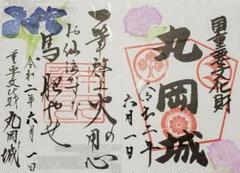 国重要文化財
丸岡城
令和二年
六月一日
一筆啓上火の用心
お仙泣かすな
馬肥やせ
令和二年六月一日
重要文化財 丸岡城